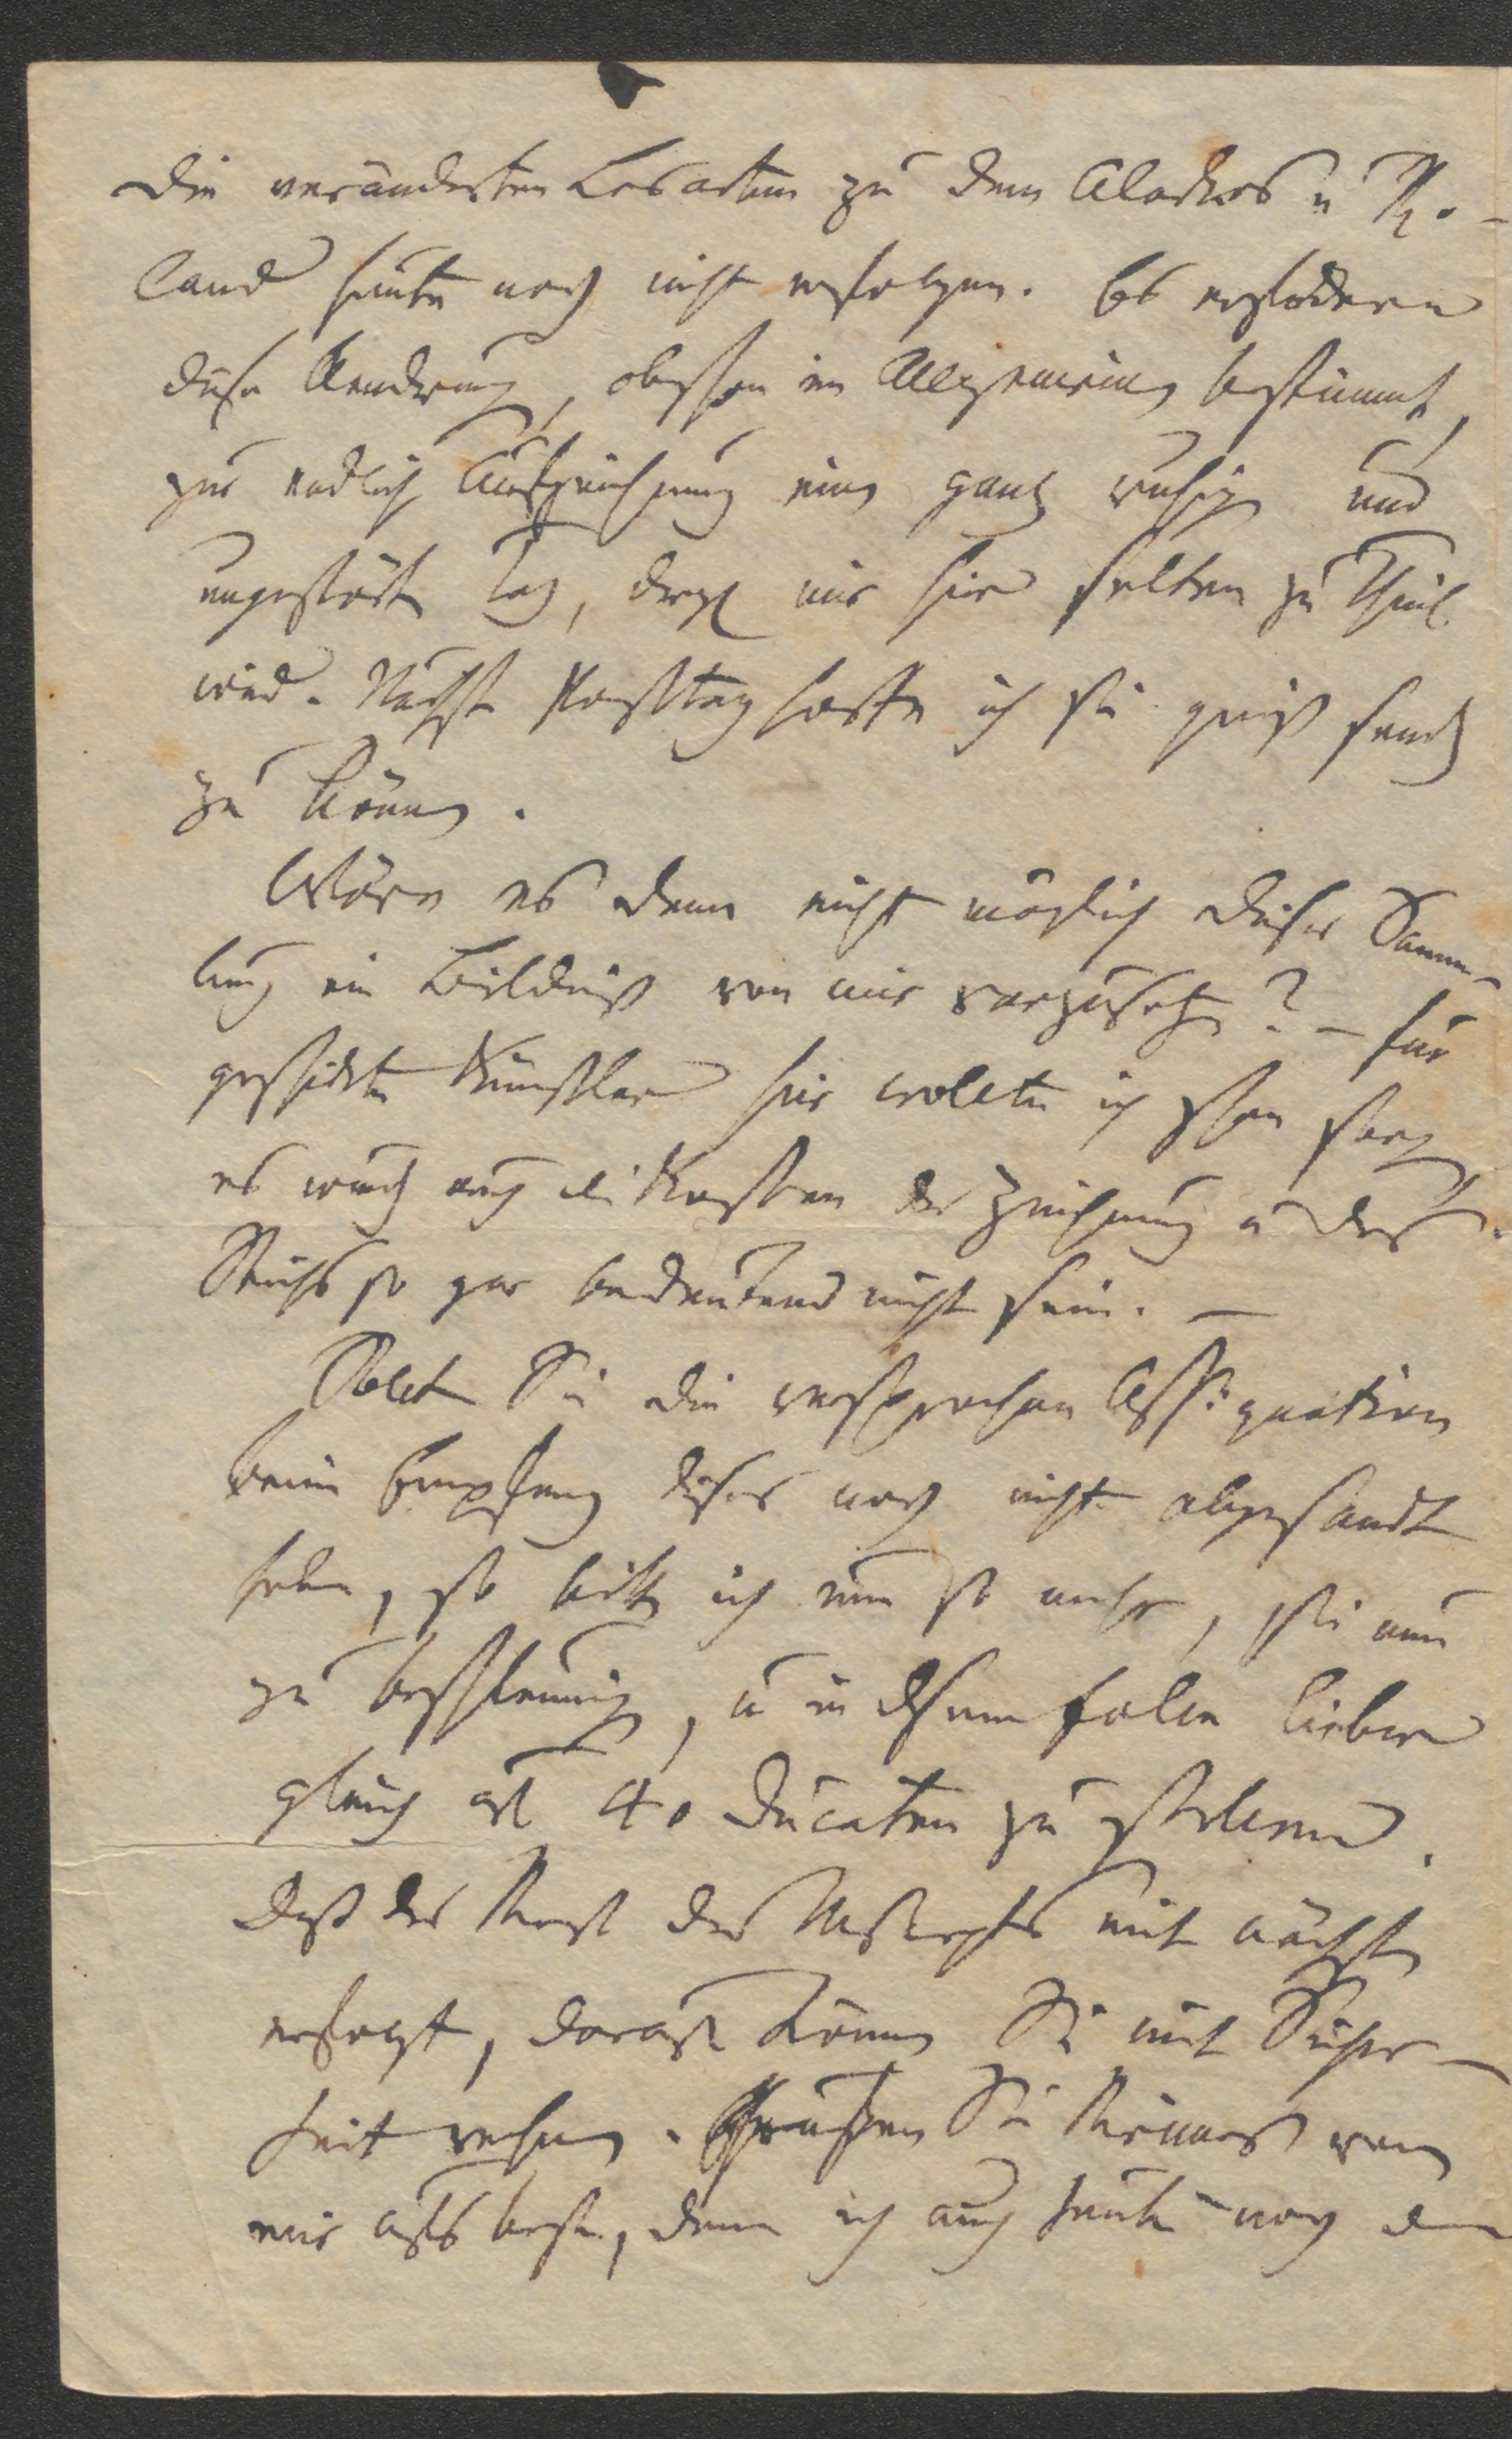 die veränderten Lesarten zu dem Alarkos u Ro-
land heute noch nicht erfolgen. Es erfodern
diese Aendrung, obschon im Allgemeinen bestimmt,
zur endlichen Aufzeichnung einen ganz ruhigen und
ungestörten Tag, dergl mir hier selten zu Theil
wird. Nächsten Posttag hoffe ich sie gewiß senden
zu können.
Wäre es denn nicht möglich dieser Samm-
lung ein Bildniß von mir vorzusetzen? – für
geschickte Künstler hier wollte ich schon sorgen
es würden auch die Kosten der Zeichnung u des
Stichs so gar bedeutend nicht sein. —
Sollten Sie die versprochne Assignation
beim Empfang dieses noch nicht abgesandt
haben, so bitte ich um so mehr, sie nun
zu beschleunigen, u in diesem Falle lieber
gleich auf 40 Ducaten zu stellen.
Daß der Rest des Mskrpts mit nächsten
erfolgt, darauf können Sie mit Sicher-
heit rechnen. Grüßen Sie Reimer von
mir aufs beste, dem ich auch heute noch